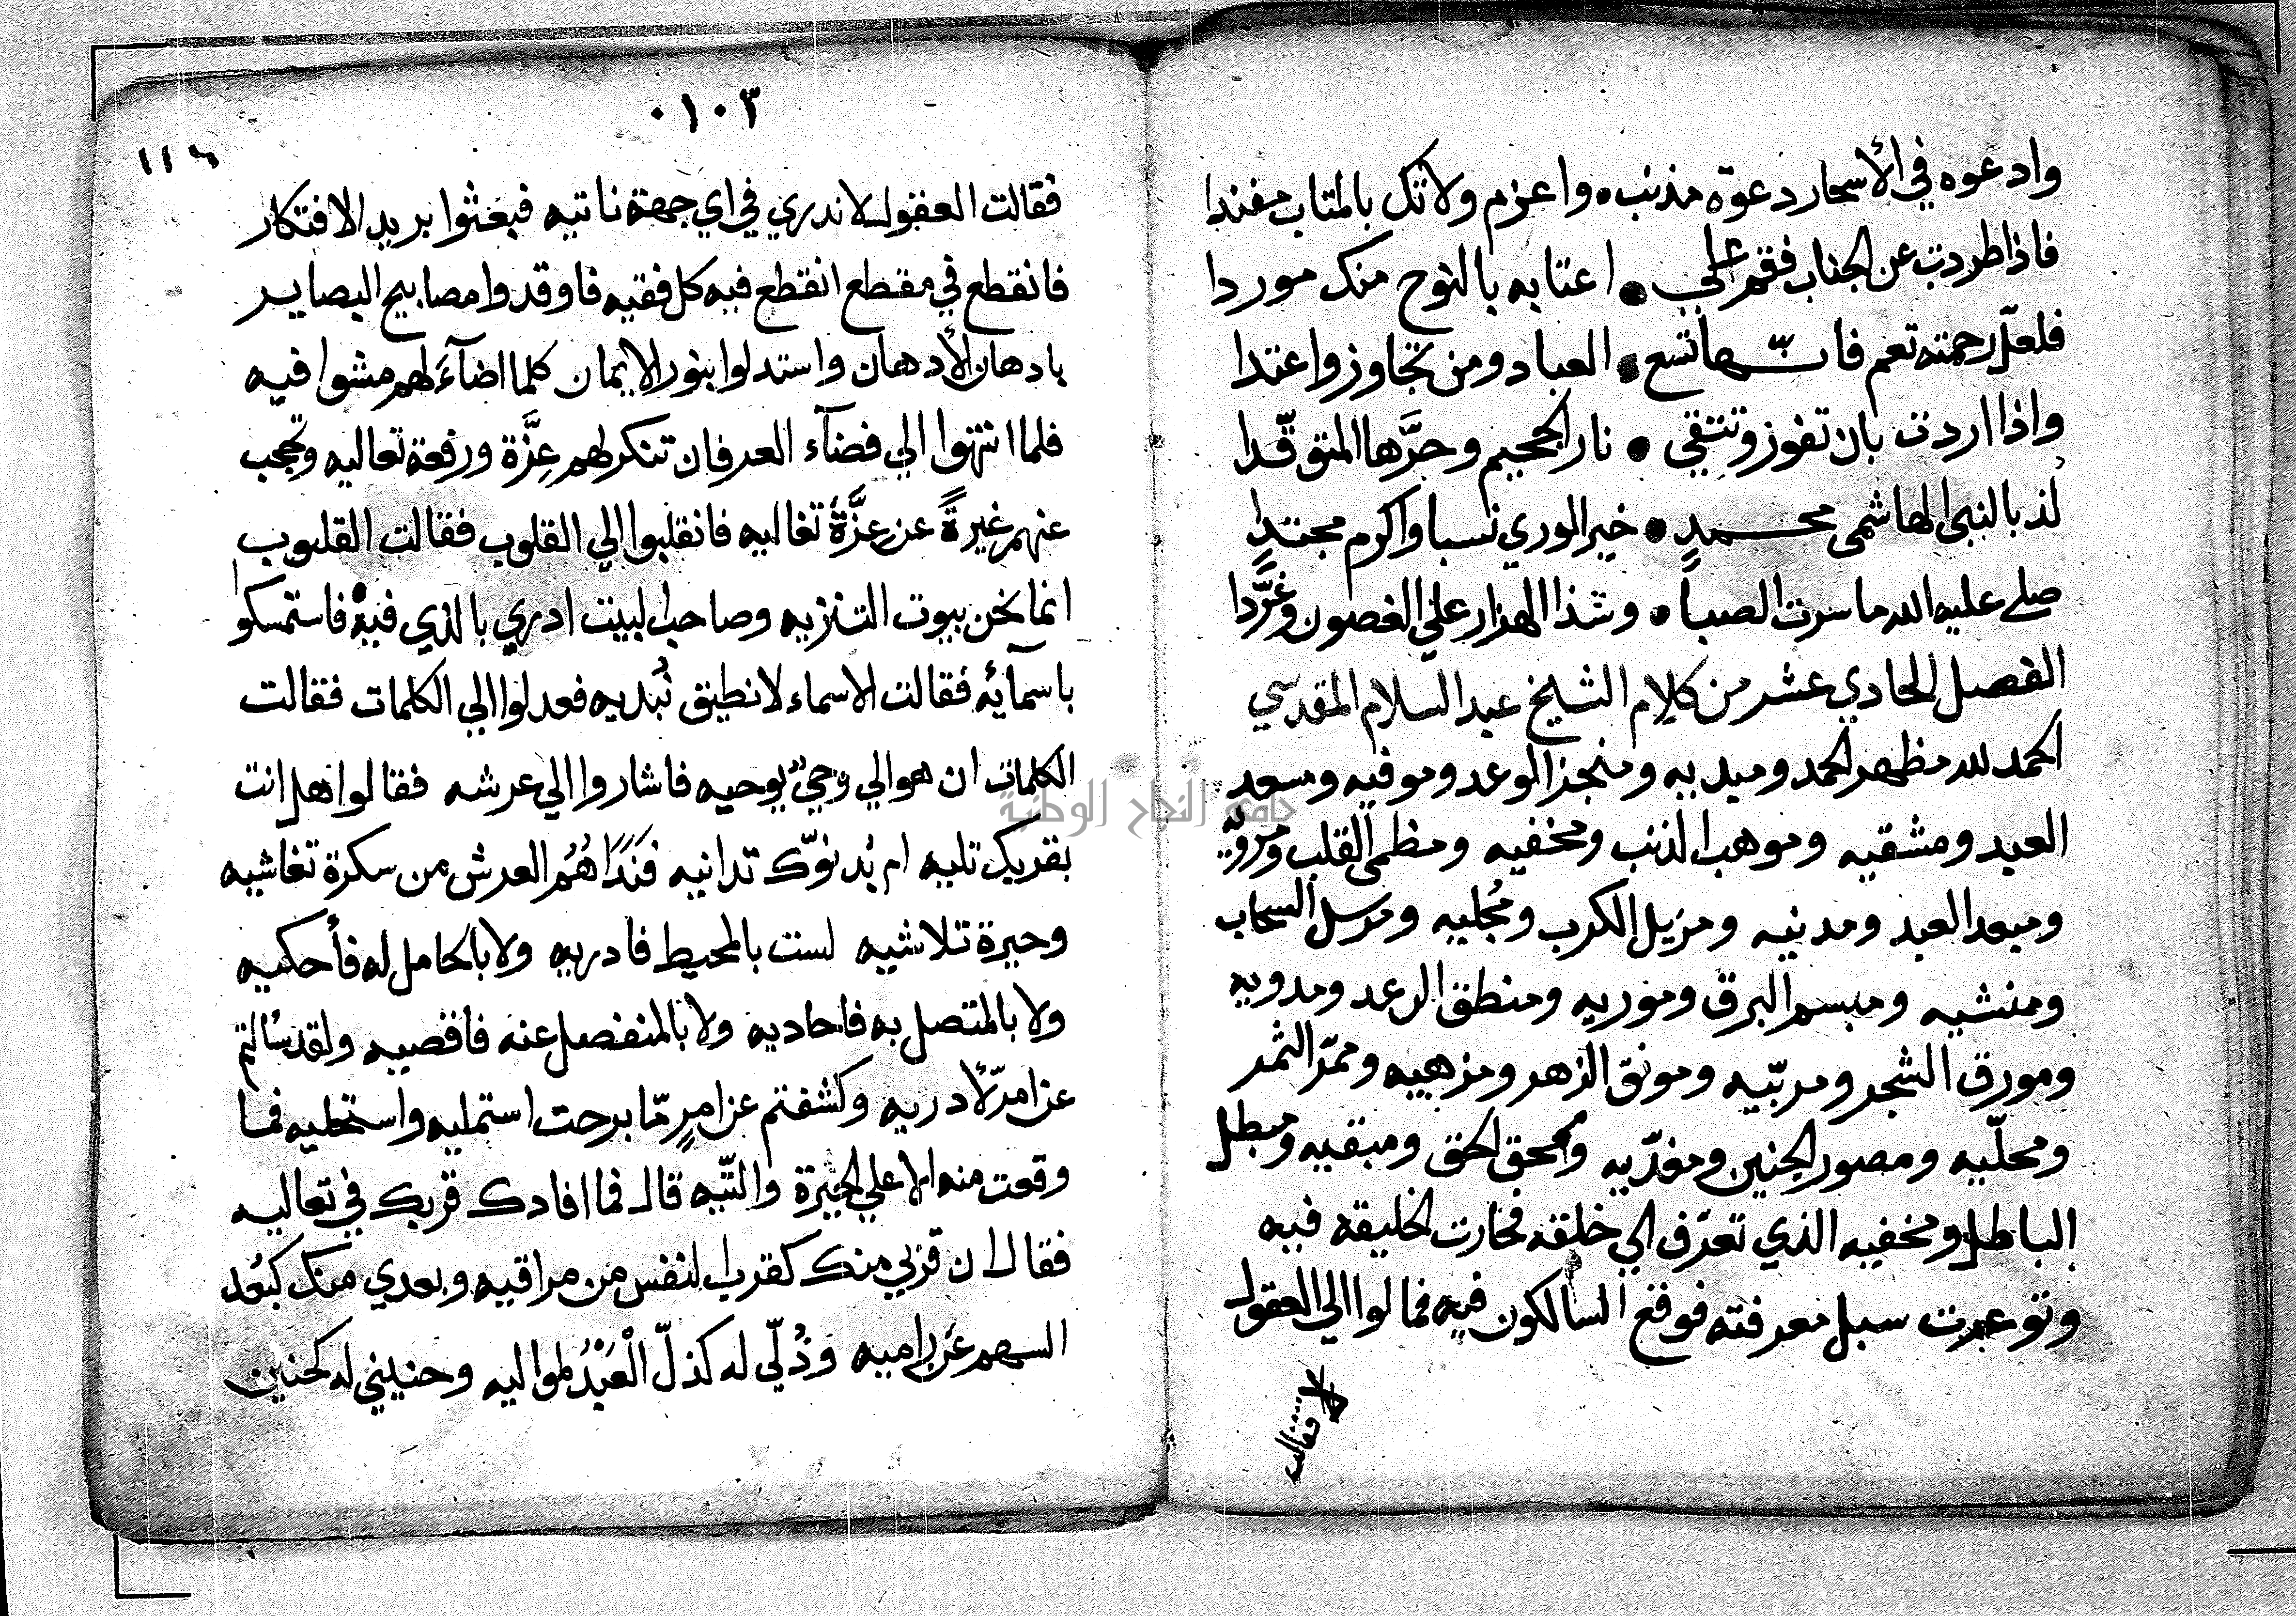 وادعوه في الأسحار دعوة مذنب واعزم ولا تك بالمتاب مفندا
فاذا طردت عن الجناب فقم علي اعتابه بالنوح منك موردا
فلعلّ رحمته تعم فانّها تسع العباد ومن تجاوز واعتدا
واذا اردت بان تفوز وتتقي نار الجحيم وحرَّها المتوقّدا
لذ بالنبي الهاشمي محمدٍ خير الوري نسبا واكرم محتدا
صلي عليه الله ما سرت الصبا وشذا الهزار علي الغصون وغرَّدا
الفصل الحادي عشر من كلام الشيخ عبد السلام المقدسي
الحمد لله مظهر الحمد ومبديه ومنجز الوعد وموفيه ومسعد
العبد ومشقيه وموهب الذنب ومخفيه ومظمي القلب ومرويّه
ومبعد العبد ومدنيه ومزيل الكرب ومُجليه ومرسل السحاب
ومنشيه ومبسم البرق وموريه ومنطق الرعد ومدويه
ومورق الشجر ومربّيه ومونق الزهر ومزهيه وممرّ الثمر
ومحلّيه ومصور الجنين ومغذّيه ومحق الحق ومبقيه ومبطل
الباطل ومخفيه الذي تعرّف الي خلقه فحارت الخليقه فيه
وتوعرت سبل معرفته فوقع السالكون فيه فمالوا الي العقول
فقالت
٠١٠٣
١١٦
فقالت العقول لا ندري في اي جهة ناتيه فبعثوا بريد الافتكار
فانقطع في مقطع انقطع فيه كل فقيه فاوقدوا مصابيح البصاير
بادهان الأدهان واستدلوا بنور الايمان كلما اضآءَ لهم مشوا فيه
فلما انتهوا الي فضآء العرفان تنكر لهم عِزَّة ورفعة تعاليه وحجب
عنهم غيرةً عن عِزَّة تغاليه فانقلبوا الي القلوب فقالت القلوب
انما نحن بيوت التنزيه وصاحب البيت ادري بالذي فيه فاستمسكوا
باسمآئه فقالت الاسماء لا نطيق نُبديه فعدلوا الي الكلمات فقالت
الكلمات ان هو الي وحيٌ يوحيه فاشاروا الي عرشه فقالوا هل انت
بقربك تليه ام بُدنوّك تدانيه فَنَدَاهُمُ العرش من سكرة تغاشيه
وحيرة تلاشيه لست بالمحيط فادريه ولا بالحامل له فأحكيه
ولا بالمتصل به فاحاديه ولا بالمنفصل عنه فاقصيه ولقد سألتم
عن امر لأدريه وكشفتم عن امرٍ مّا برحت استمليه واستحليه فما
وقعت منه الا علي الحيرة والتّيه قال فما افادك قربك في تعاليه
فقال ان قربي منك كقرب النفس من مراقيه وبعدي منك كبُعد
السهم عن راميه وذُلّي له كذلّ الْعَبْدُ لمواليه وحنيني له كحنين
جامعة النجاح الوطنية